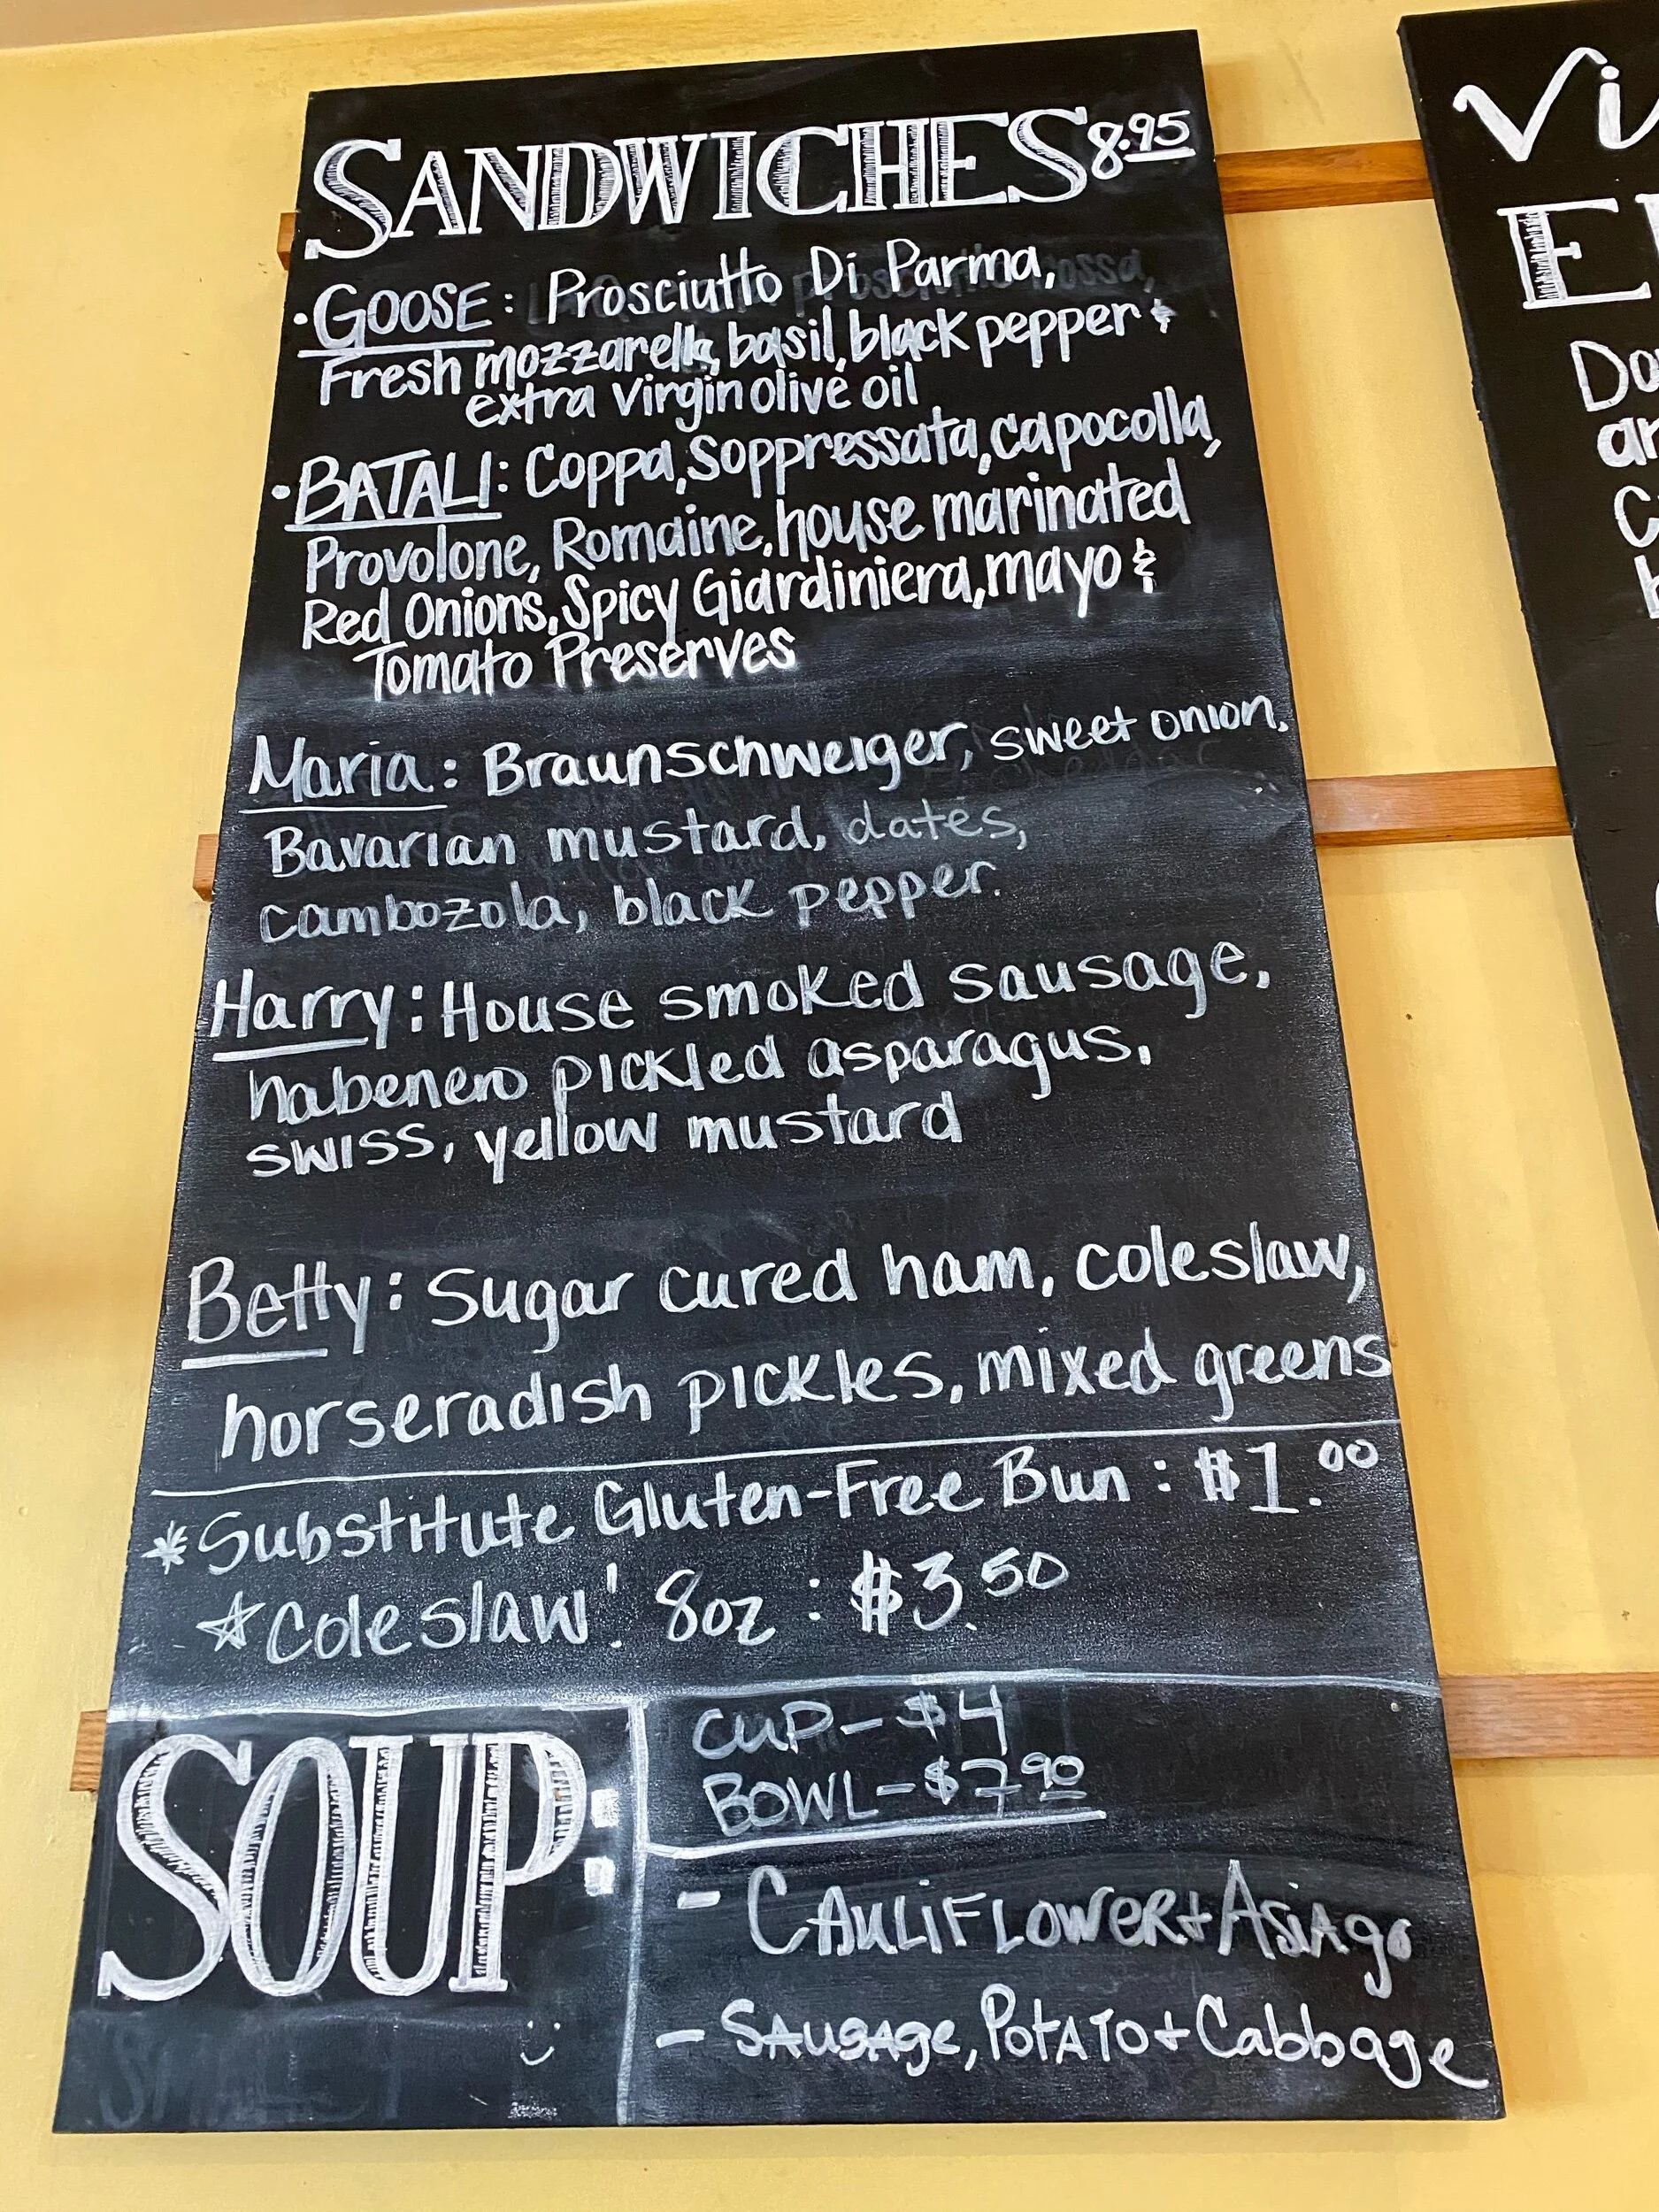 SANDWICHES 8.95
• GOOSE: Prosciutto Di Parma,
Fresh mozzarella, basil, black pepper &
extra virgin olive oil
• BATALI: Coppa, Soppressata, capocolla,
Provolone, Romaine, house marinated
Red Onions, Spicy Giardiniera, mayo &
Tomato Preserves
Maria: Braunschweiger, sweet onion,
Bavarian mustard, dates,
cambozola, black pepper.
Harry: House smoked sausage,
habenero pickled asparagus,
swiss, yellow mustard
Betty: Sugar cured ham, coleslaw,
horseradish pickles, mixed greens
*Substitute Gluten-Free Bun: $1.00
☆Coleslaw! 8oz: $3.50
SOUP:
CUP - $4
BOWL - $7.90
- CAULIFLOWER + ASIAgo
- SAUSAge, POTATO + Cabbage